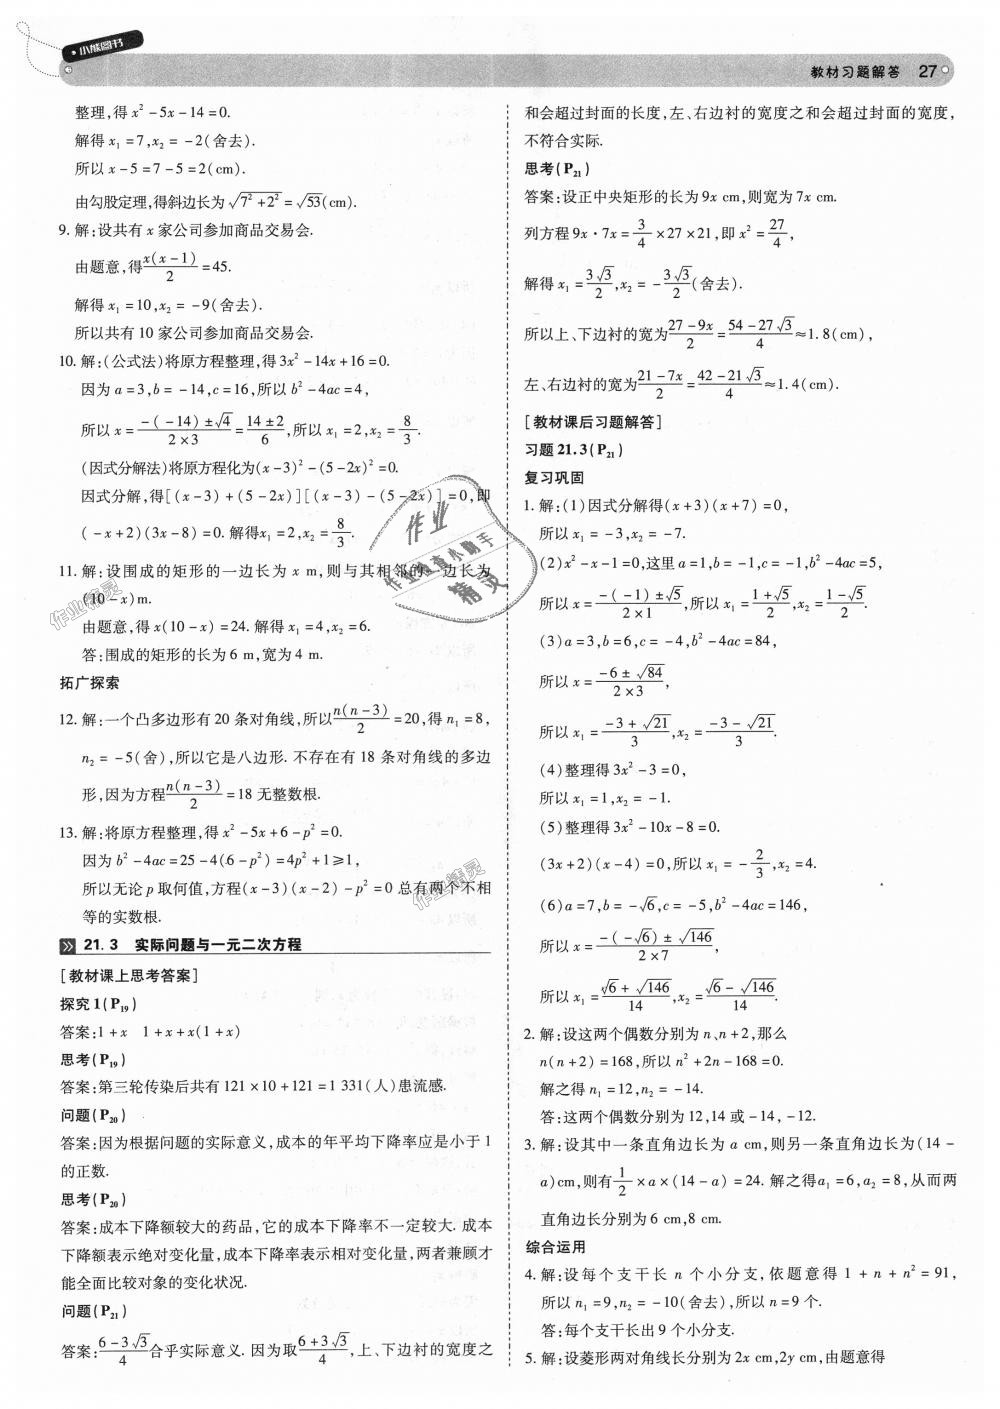 小熊图书
教材习题解答 27
整理,得 x² - 5x - 14 = 0.
解得 x₁ = 7, x₂ = -2(舍去).
所以 x - 5 = 7 - 5 = 2(cm).
由勾股定理,得斜边长为 √(7² + 2²) = √53(cm).
9. 解:设共有 x 家公司参加商品交易会.
由题意,得 x(x-1)/2 = 45.
解得 x₁ = 10, x₂ = -9(舍去).
所以共有 10 家公司参加商品交易会.
10. 解:(公式法)将原方程整理,得 3x² - 14x + 16 = 0.
因为 a = 3, b = -14, c = 16, 所以 b² - 4ac = 4,
所以 x = (-(-14) ± √4)/(2×3) = (14 ± 2)/6, 所以 x₁ = 2, x₂ = 8/3.
(因式分解法)将原方程化为(x-3)² - (5-2x)² = 0.
因式分解,得[(x-3) + (5-2x)][(x-3) - (5-2x)] = 0,即
(-x+2)(3x-8) = 0. 解得x₁ = 2, x₂ = 8/3.
11. 解:设围成的矩形的一边长为 x m,则与其相邻的一边长为
(10 - x)m.
由题意,得 x(10-x) = 24. 解得 x₁ = 4, x₂ = 6.
答:围成的矩形的长为 6 m,宽为 4 m.
拓广探索
12. 解:一个凸多边形有 20 条对角线,所以 n(n-3)/2 = 20,得 n₁ = 8,
n₂ = -5(舍),所以它是八边形. 不存在有 18 条对角线的多边
形,因为方程 n(n-3)/2 = 18 无整数根.
13. 解:将原方程整理,得 x² - 5x + 6 - p² = 0.
因为 b² - 4ac = 25 - 4(6 - p²) = 4p² + 1 ≥ 1,
所以无论 p 取何值,方程(x-3)(x-2) - p² = 0 总有两个不相
等的实数根.
21.3 实际问题与一元二次方程
[教材课上思考答案]
探究 1(P₁₉)
答案:1 + x 1 + x + x(1 + x)
思考(P₁₉)
答案:第三轮传染后共有 121 × 10 + 121 = 1 331(人)患流感.
问题(P₂₀)
答案:因为根据问题的实际意义,成本的年平均下降率应是小于 1
的正数.
思考(P₂₀)
答案:成本下降额较大的药品,它的成本下降率不一定较大. 成本
下降额表示绝对变化量,成本下降率表示相对变化量,两者兼顾才
能全面比较对象的变化状况.
问题(P₂₁)
答案: (6-3√3)/4 合乎实际意义. 因为取 (6+3√3)/4,上、下边衬的宽度之
和会超过封面的长度,左、右边衬的宽度之和会超过封面的宽度,
不符合实际.
思考(P₂₁)
答案:设正中央矩形的长为 9x cm,则宽为 7x cm.
列方程 9x·7x = 3/4 × 27 × 21,即 x² = 27/4,
解得 x₁ = 3√3/2, x₂ = -3√3/2(舍去).
所以上、下边衬的宽为 (27-9x)/2 = (54-27√3)/4 ≈ 1.8(cm),
左、右边衬的宽为 (21-7x)/2 = (42-21√3)/4 ≈ 1.4(cm).
[教材课后习题解答]
习题 21.3(P₂₁)
复习巩固
1. 解:(1)因式分解得(x+3)(x+7) = 0,
所以 x₁ = -3, x₂ = -7.
(2)x² - x - 1 = 0,这里 a = 1, b = -1, c = -1, b² - 4ac = 5,
所以 x = (-(-1) ± √5)/(2×1), 所以 x₁ = (1+√5)/2, x₂ = (1-√5)/2.
(3)a = 3, b = 6, c = -4, b² - 4ac = 84,
所以 x = (-6 ± √84)/(2×3),
所以 x₁ = (-3+√21)/3, x₂ = (-3-√21)/3.
(4)整理得 3x² - 3 = 0,
所以 x₁ = 1, x₂ = -1.
(5)整理得 3x² - 10x - 8 = 0.
(3x+2)(x-4) = 0,所以 x₁ = -2/3, x₂ = 4.
(6)a = 7, b = -√6, c = -5, b² - 4ac = 146,
所以 x = (-(-√6) ± √146)/(2×7),
所以 x₁ = (√6+√146)/14, x₂ = (√6-√146)/14.
2. 解:设这两个偶数分别为 n、n+2,那么
n(n+2) = 168,所以 n² + 2n - 168 = 0.
解之得 n₁ = 12, n₂ = -14.
答:这两个偶数分别为 12,14 或 -14, -12.
3. 解:设其中一条直角边长为 a cm,则另一条直角边长为(14 -
a)cm,则有 1/2 × a × (14 - a) = 24. 解之得a₁ = 6, a₂ = 8,从而两
直角边长分别为 6 cm,8 cm.
综合运用
4. 解:设每个支干长 n 个小分支,依题意得 1 + n + n² = 91,
所以 n₁ = 9, n₂ = -10(舍去),所以 n = 9 个.
答:每个支干长出 9 个小分支.
5. 解:设菱形两对角线长分别为 2x cm,2y cm,由题意得
作业
作业检查小助手
精灵
作业精灵
作业精灵